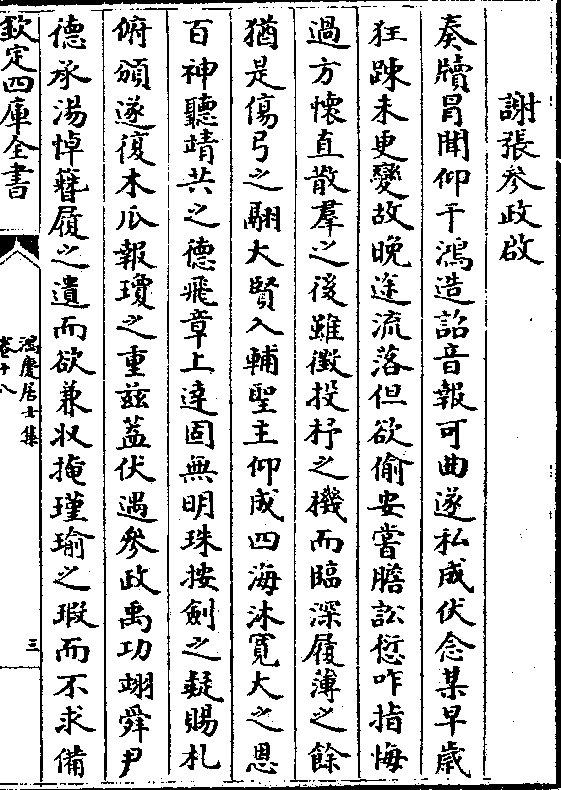 謝張參政啟
奏牘冒聞仰干鴻造詔音報可曲遂私成伏念某早歳
狂踈未更變故晚途流落但欲偷安嘗膽訟愆咋指悔
過方懷直散羣之後雖徴投杼之機而臨深履薄之餘
猶是傷弓之翮大賢入輔聖主仰成四海沐寛大之恩
百神聽靖共之德飛章上達固無明珠按劍之疑賜札
俯頒遂復木瓜報瓊之重兹蓋伏遇參政禹功翊舜尹
德承湯悼簮履之遺而欲兼收掩瑾瑜之瑕而不求備
欽定四庫全書
鴻慶居士集
卷十八
三